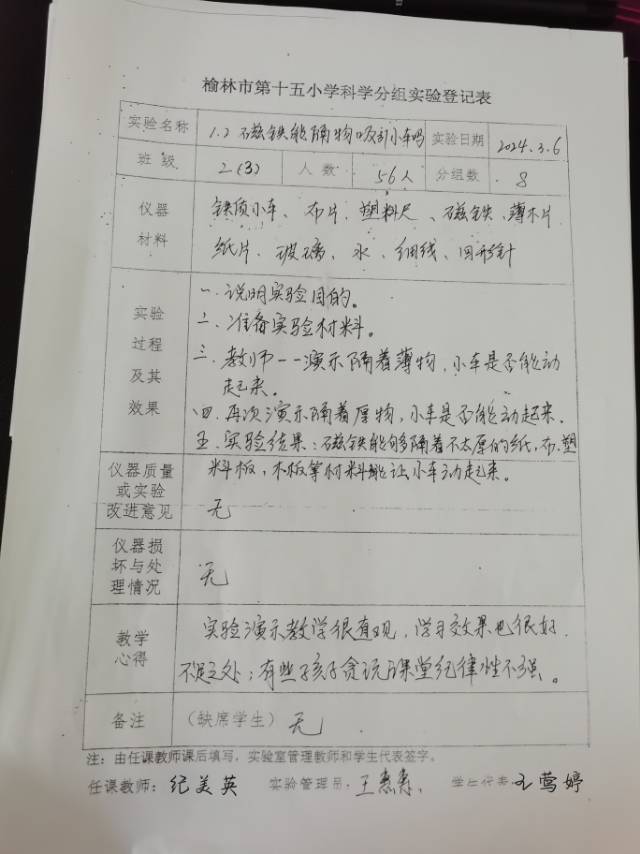 榆林市第十五小学科学分组实验登记表
实验名称 1.2 磁铁能隔物吸引小车吗 实验日期 2024.3.6
班级 2(3) 人数 56人 分组数 8
仪器 铁质小车、布片、塑料尺、磁铁、薄木片
材料 纸片、玻璃、水、细线、回形针
一、说明实验目的。
实验 二、准备实验材料。
过程 三、教师一一演示隔着薄物,小车是否能动
及其 起来。
效果 四、再次演示隔着厚物,小车是否能动起来.
五、实验结果:磁铁能够隔着不太厚的纸,布,塑
仪器质量 料板,木板等材料能让小车动起来。
或实验
改进意见 无
仪器损
坏与处
理情况 无
教学 实验演示教学很直观,学习效果也很好.
心得 不足之处:有些孩子贪玩课堂纪律性不强。
备注 (缺席学生) 无
注:由任课教师课后填写,实验室管理教师和学生代表签字。
任课教师:纪美英 实验管理员: 学生代表: